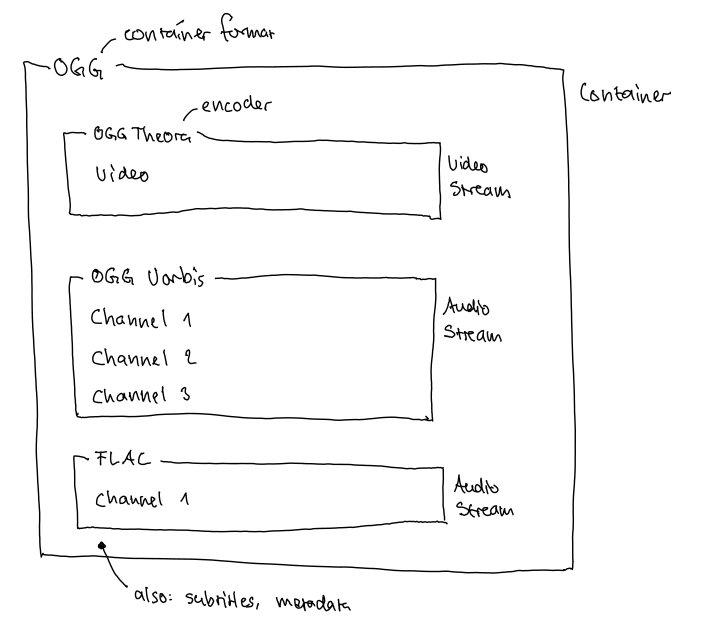 container format
OGG
Container
encoder
OGG Theora
Video
Video
Stream
OGG Vorbis
Channel 1
Channel 2
Channel 3
Audio
Stream
FLAC
Channel 1
Audio
Stream
also: subtitles, metadata